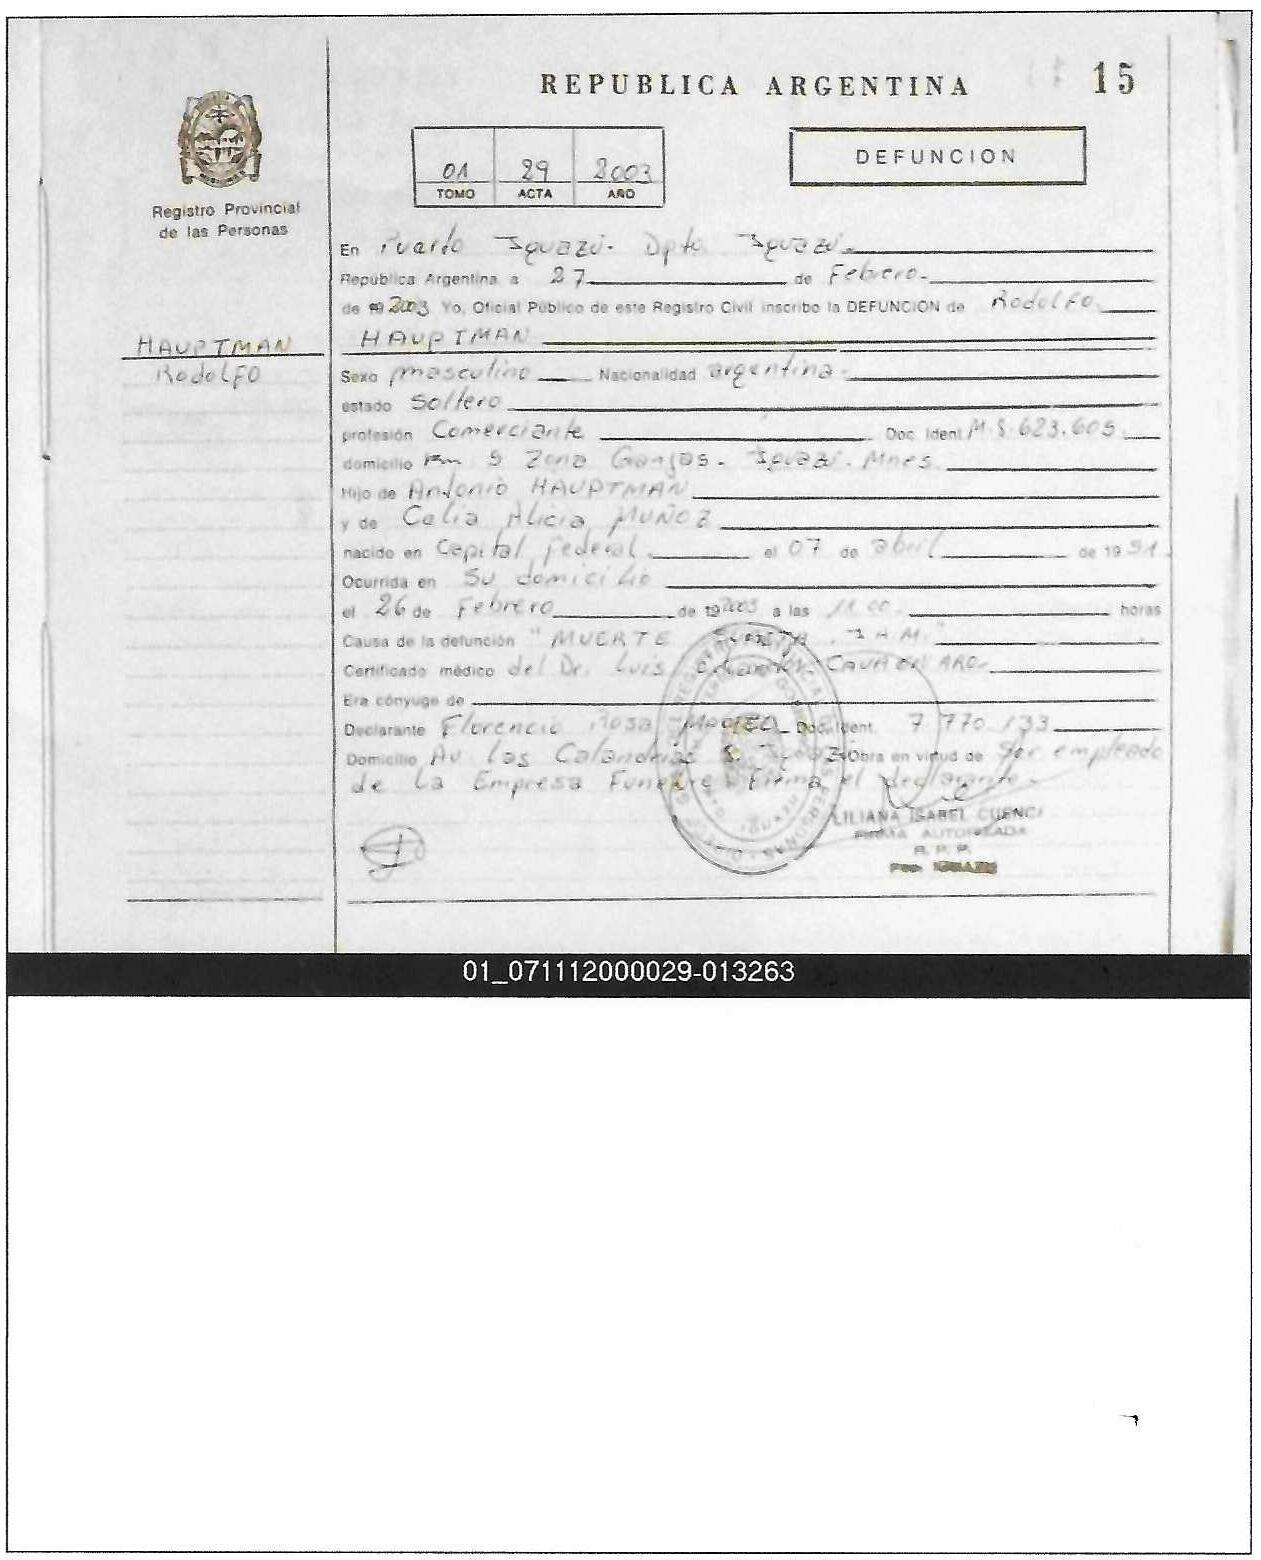 REPUBLICA ARGENTINA
15
01 29 2003
TOMO ACTA AÑO
DEFUNCION
Registro Provincial
de las Personas
HAUPTMAN
RodolFO
En Puerto Iguazú. Dpto. Iguazú.
República Argentina, a 27 de Febrero.
de 19 2003 Yo, Oficial Público de este Registro Civil inscribo la DEFUNCION de RodolFo
HAUPTMAN
Sexo masculino Nacionalidad argentina.
estado Soltero
profesión Comerciante Doc. Ident. M. 8.623.605.
domicilio Km 5 Zona Granjas. Iguazú. Mnes.
Hijo de Antonio HAUPTMAN
y de Celia Alicia MUÑOZ
nacido en Capital federal el 07 de abril de 1951.
Ocurrida en Su domicilio
el 26 de Febrero de 19 2003 a las 11.00. horas
Causa de la defunción "MUERTE SUBITA. I A M."
Certificado médico del Dr. Luis
Era cónyuge de
Declarante Florencio Rosa Doc. Ident. 7.770.133
Domicilio Av las Calandrias Obra en virtud de Ser empleado
de La Empresa Funebre Firma el declarante
LILIANA ISABEL CUENCA
FIRMA AUTORIZADA
R. P. P.
Pto. IGUAZU
01_071112000029-013263